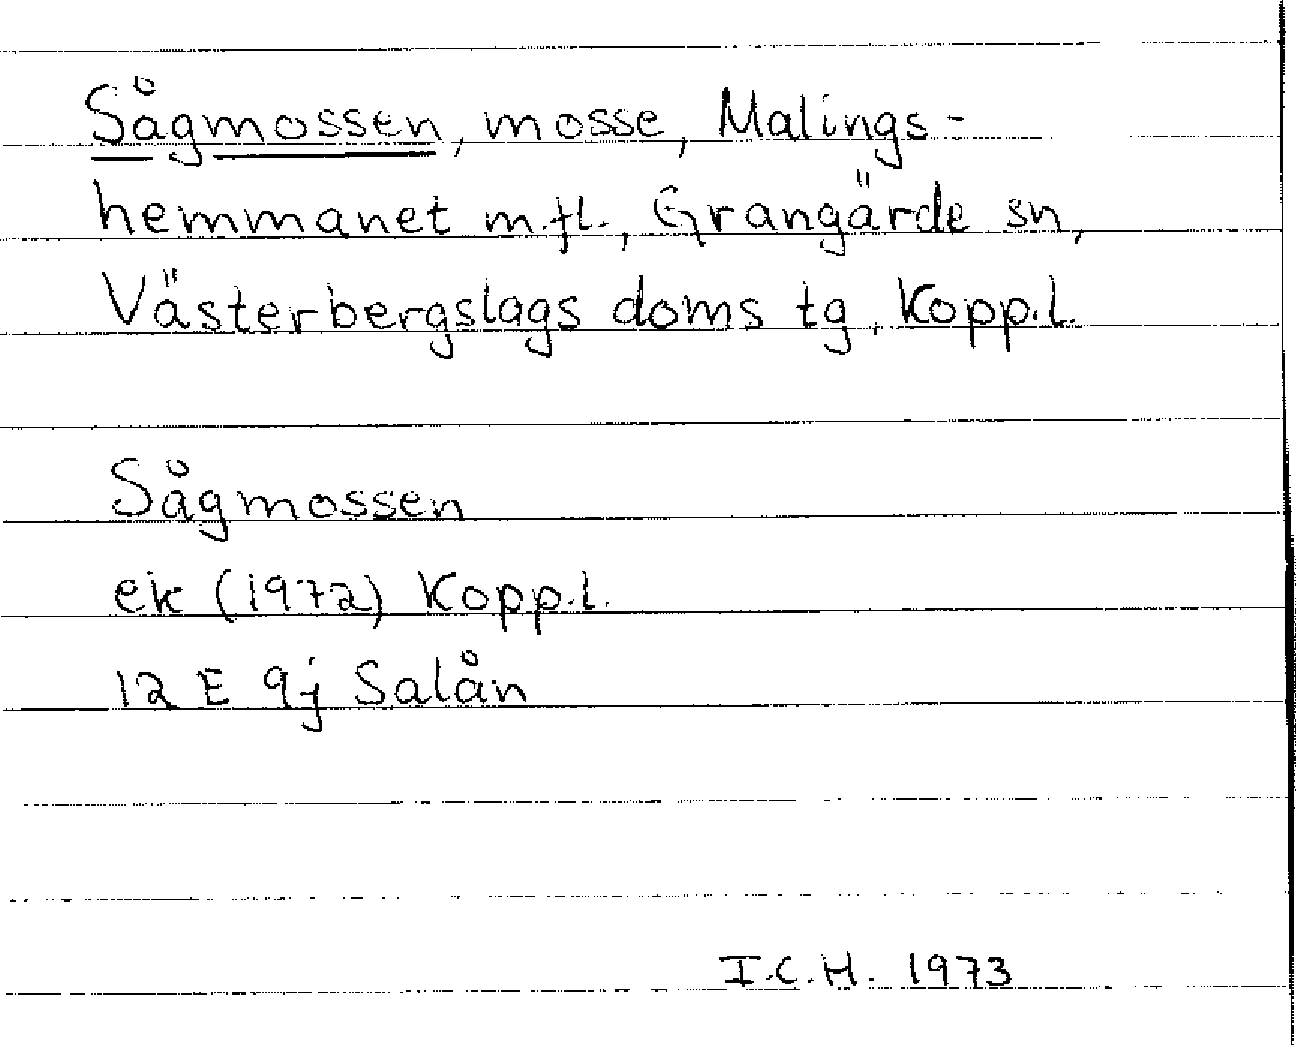 Sågmossen, mosse, Malings-
hemmanet m.fl., Grangärde sn,
Västerbergslags doms tg, Kopp.l.
Sågmossen
ek (1972) Kopp.l.
12 E 9j Salån
I.C.H. 1973